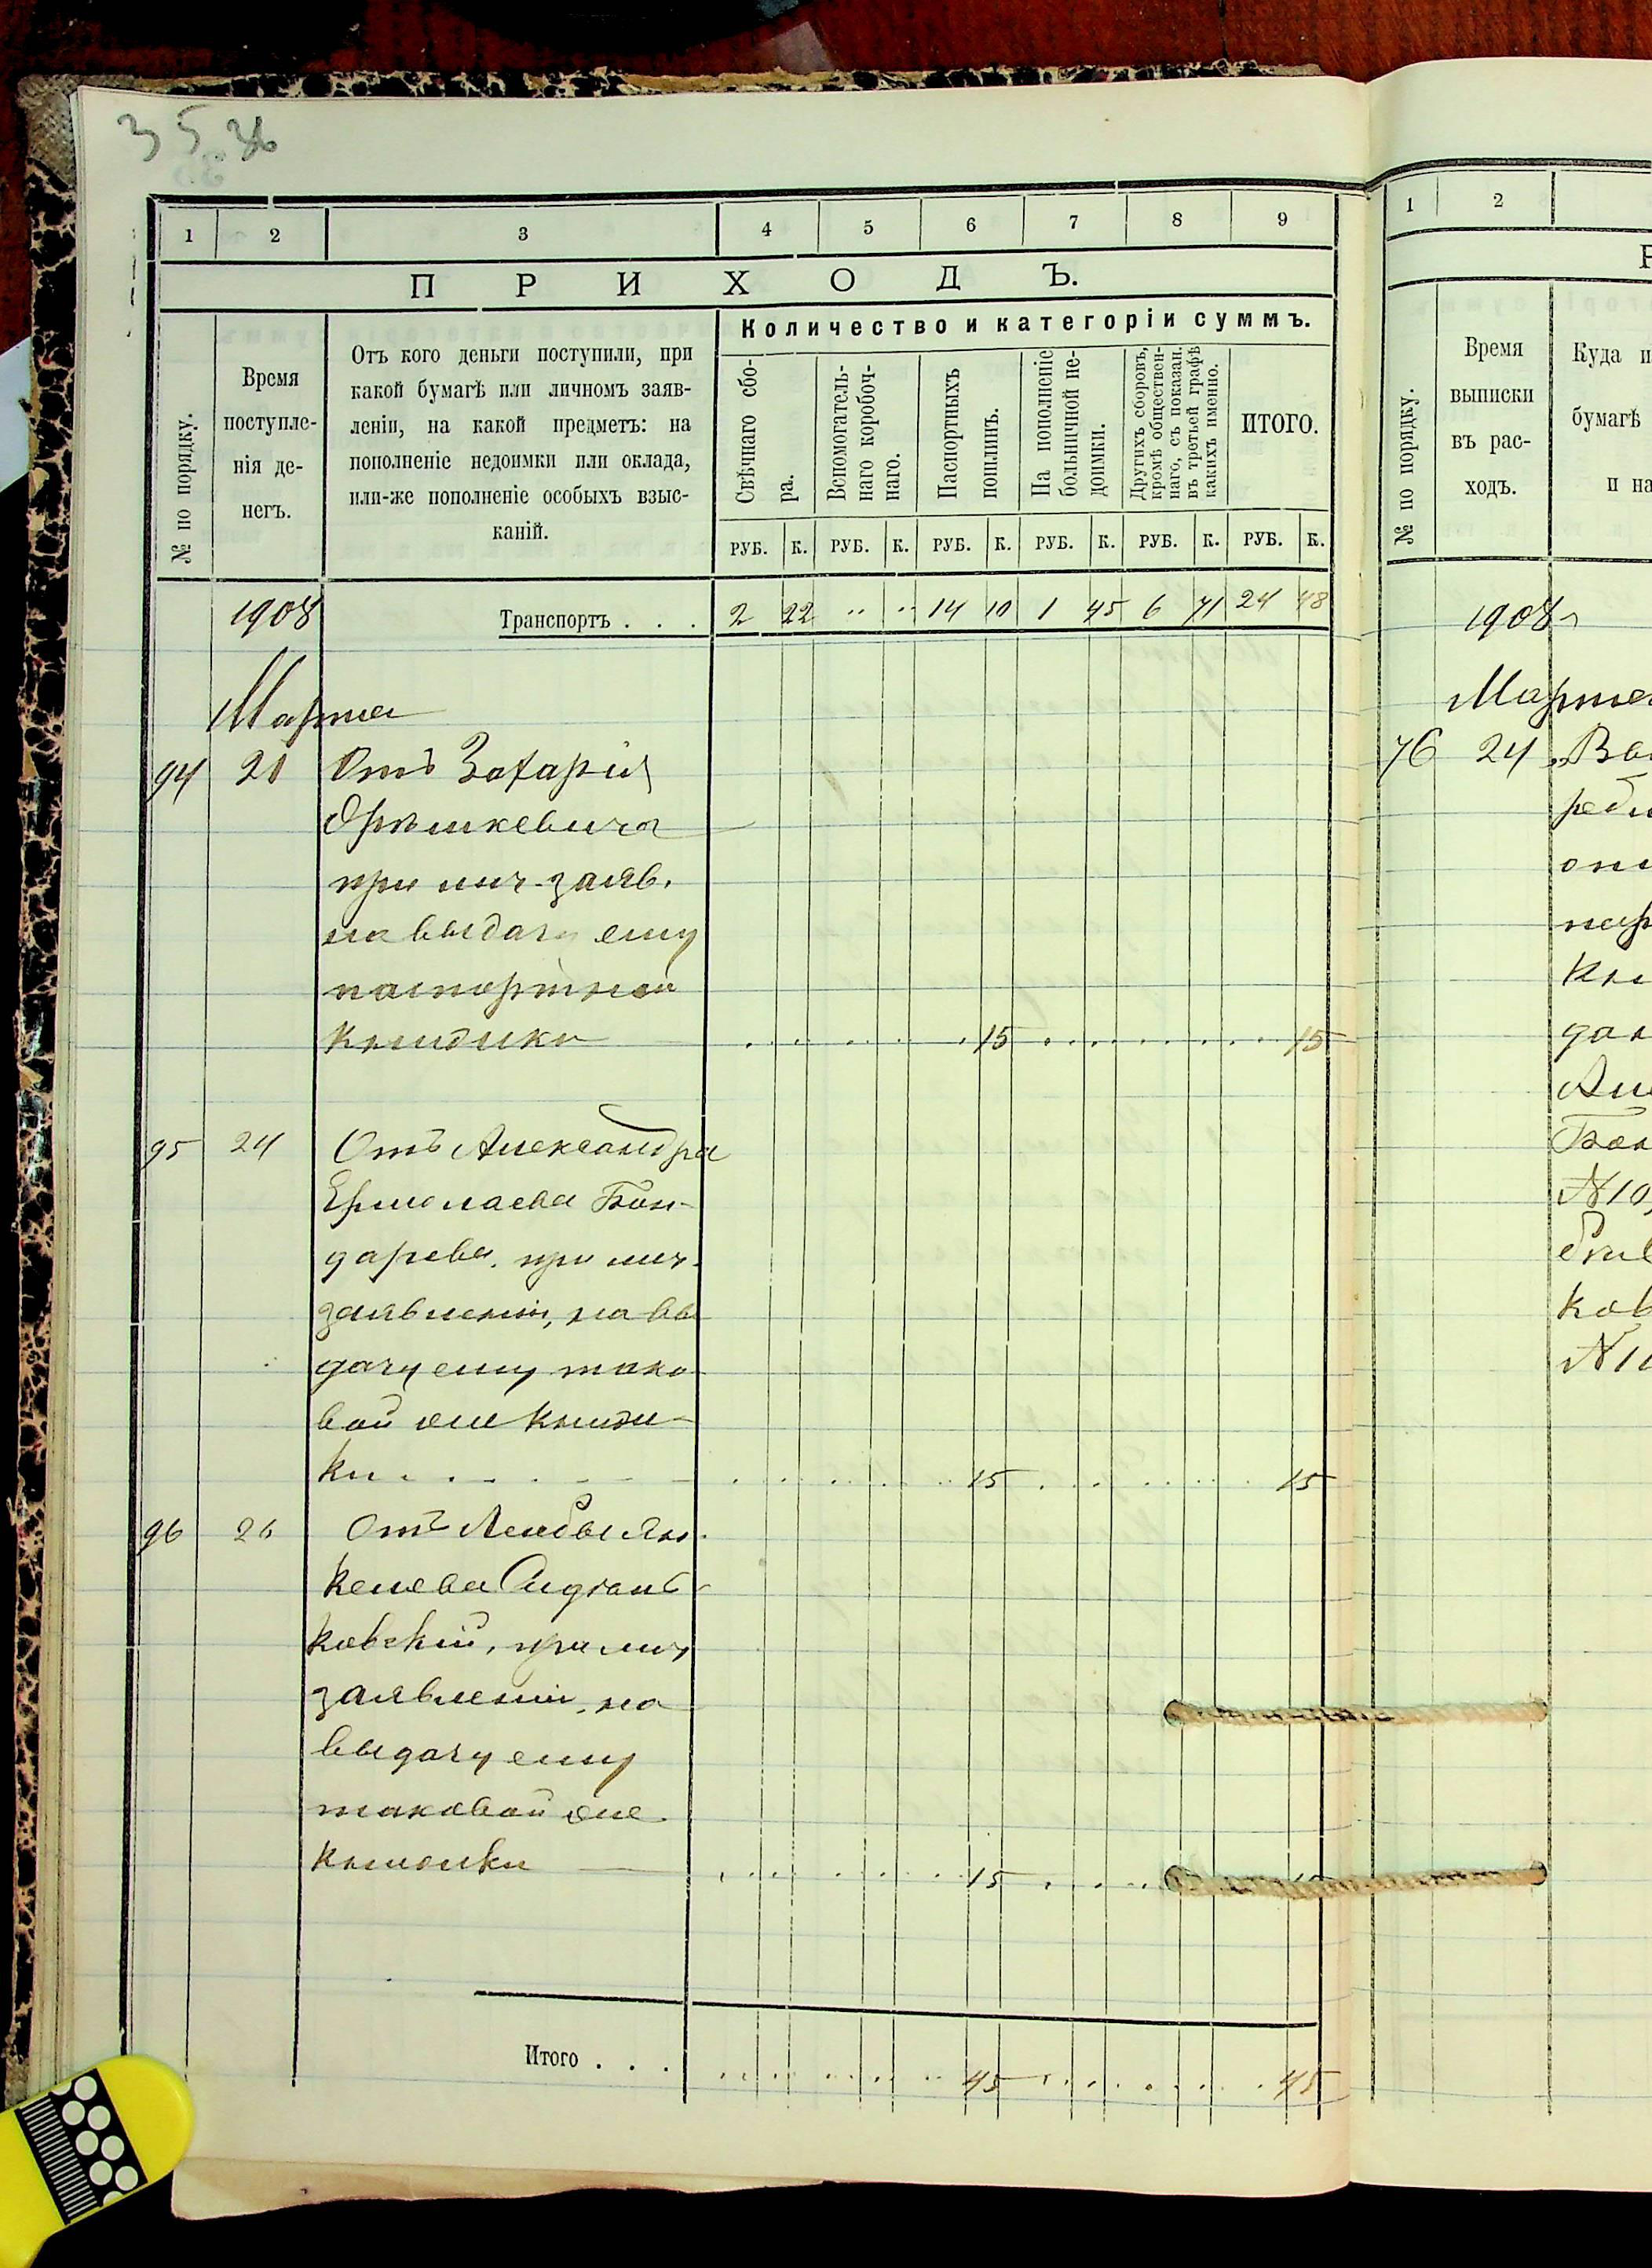 35 36
1 2 3 4 5 6 7 8 9
ПРИХОДЪ.
№ по порядку.
Время
поступле-
нія де-
негъ.
Отъ кого деньги поступили, при
какой бумагѣ или личномъ заяв-
леніи, на какой предметъ: на
пополненіе недоимки или оклада,
или-же пополненіе особыхъ взыс-
каній.
Количество и категоріи суммъ.
Свѣчнаго сбо-
ра.
Вспомогатель-
наго коробоч-
наго.
Паспортныхъ
пошлинъ.
На пополненіе
больничной не-
доимки.
Другихъ сборовъ,
кромѣ обществен-
наго, съ показан.
въ третьей графѣ
какихъ именно.
ИТОГО.
РУБ. К. РУБ. К. РУБ. К. РУБ. К. РУБ. К. РУБ. К.
1908 Транспортъ . . . 2 22 " " 14 10 1 45 6 71 24 48
Марта
94 21 Отъ Захарія
при лич. заяв.
на выдачу ему
паспортной
книжки 15 15
95 24 Отъ Александра
Ермолаева Бон-
дарева, при лич.
заявленіи, на вы
дачу ему тако
вой же книж-
ки . . . . 15 15
96 26 Отъ Лейбы Ян-
келева
ковскій, при лич
заявленіи, на
выдачу ему
таковой же
книжки 15 15
Итого . . . 45 45
1 2
№ по порядку.
Время
выписки
въ рас-
ходъ.
Куда и
бумагѣ
и на
1908
Марта
76 24 „Вы
опи
пар
Кни
дан
Але
Бон
№10,
ков
№11